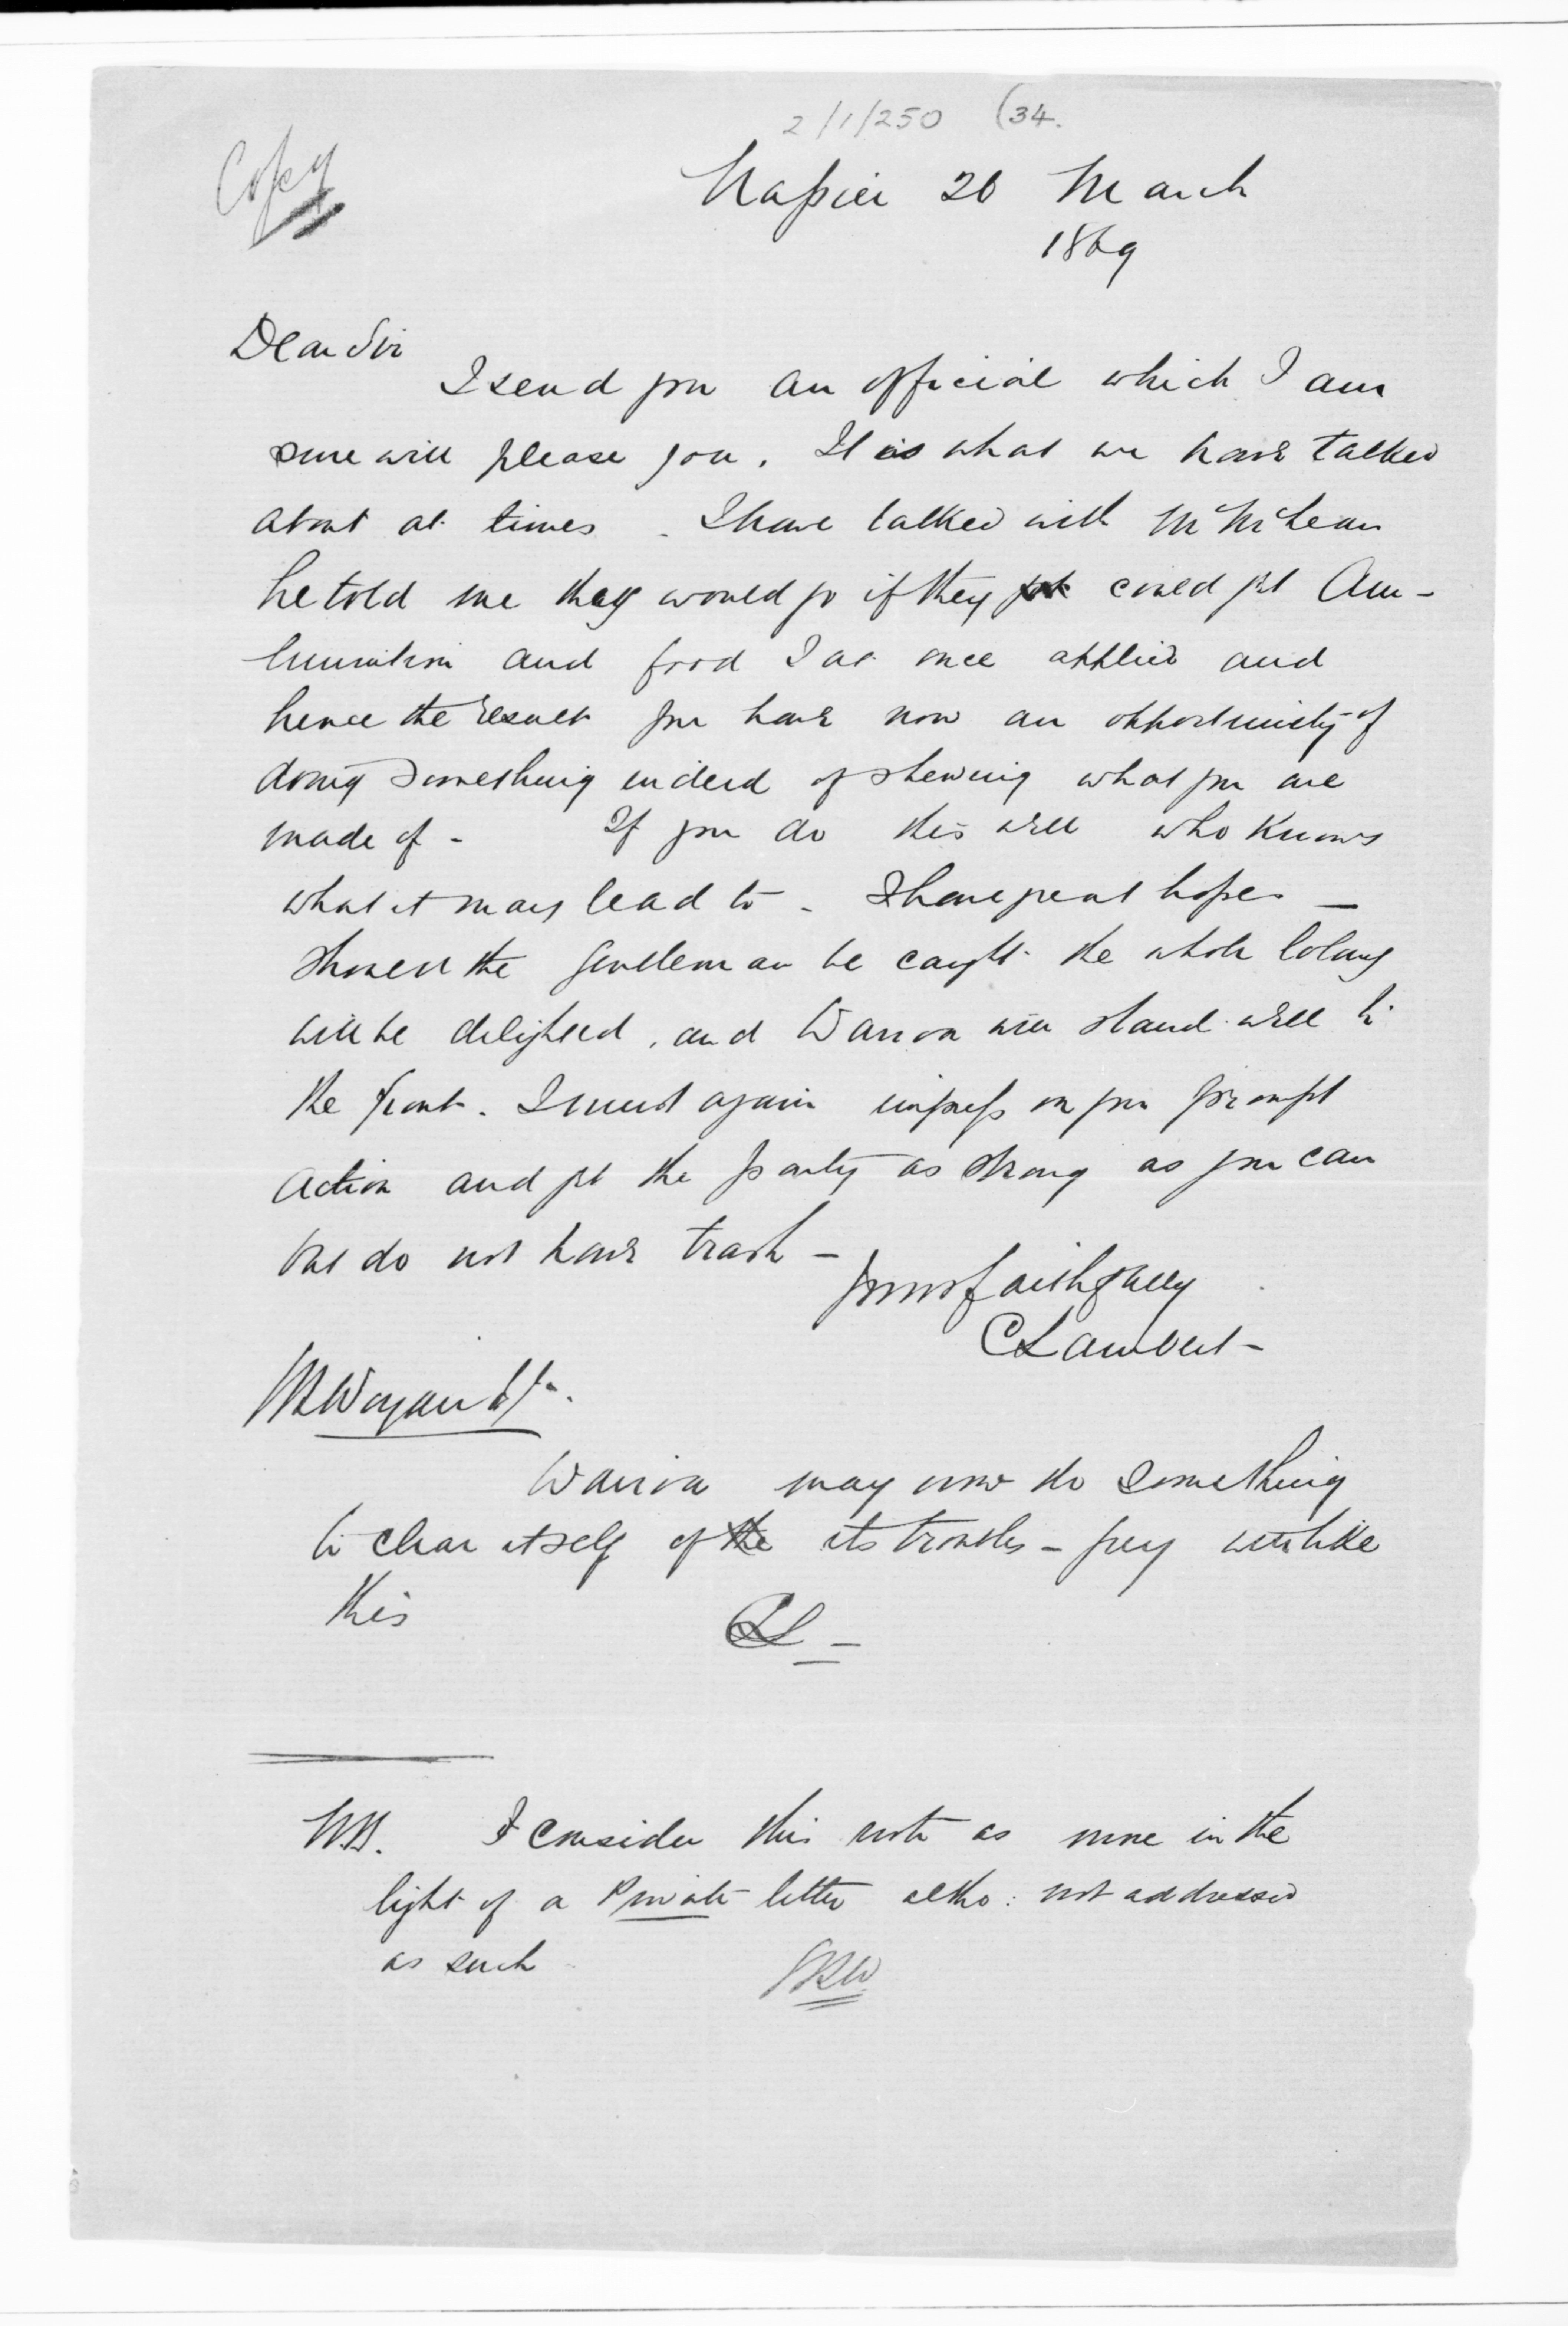 2/1/250 (34.
Copy
Napier 20 March
1869
Dear Sir
I send you an official which I am
sure will please you. It is what we have talked
about at times. I have talked with Mr McLean
he told me they would go if they could get Am-
munition and food I at once applied and
hence the result you have now an opportunity of
doing something indeed of shewing what you are
made of - If you do this well who knows
what it may lead to - I have great hopes -
should the gentleman be caught the whole Colony
will be delighted, and Wairoa will stand well to
the front. I must again impress on you prompt
action and get the party as strong as you can
but do not have trash -
yours faithfully
C Lambert -
Wairoa may now do something
to clear itself of its troubles - pray
this
CL -
NB. I consider this note as more in the
light of a Private letter altho: not addressed
as such